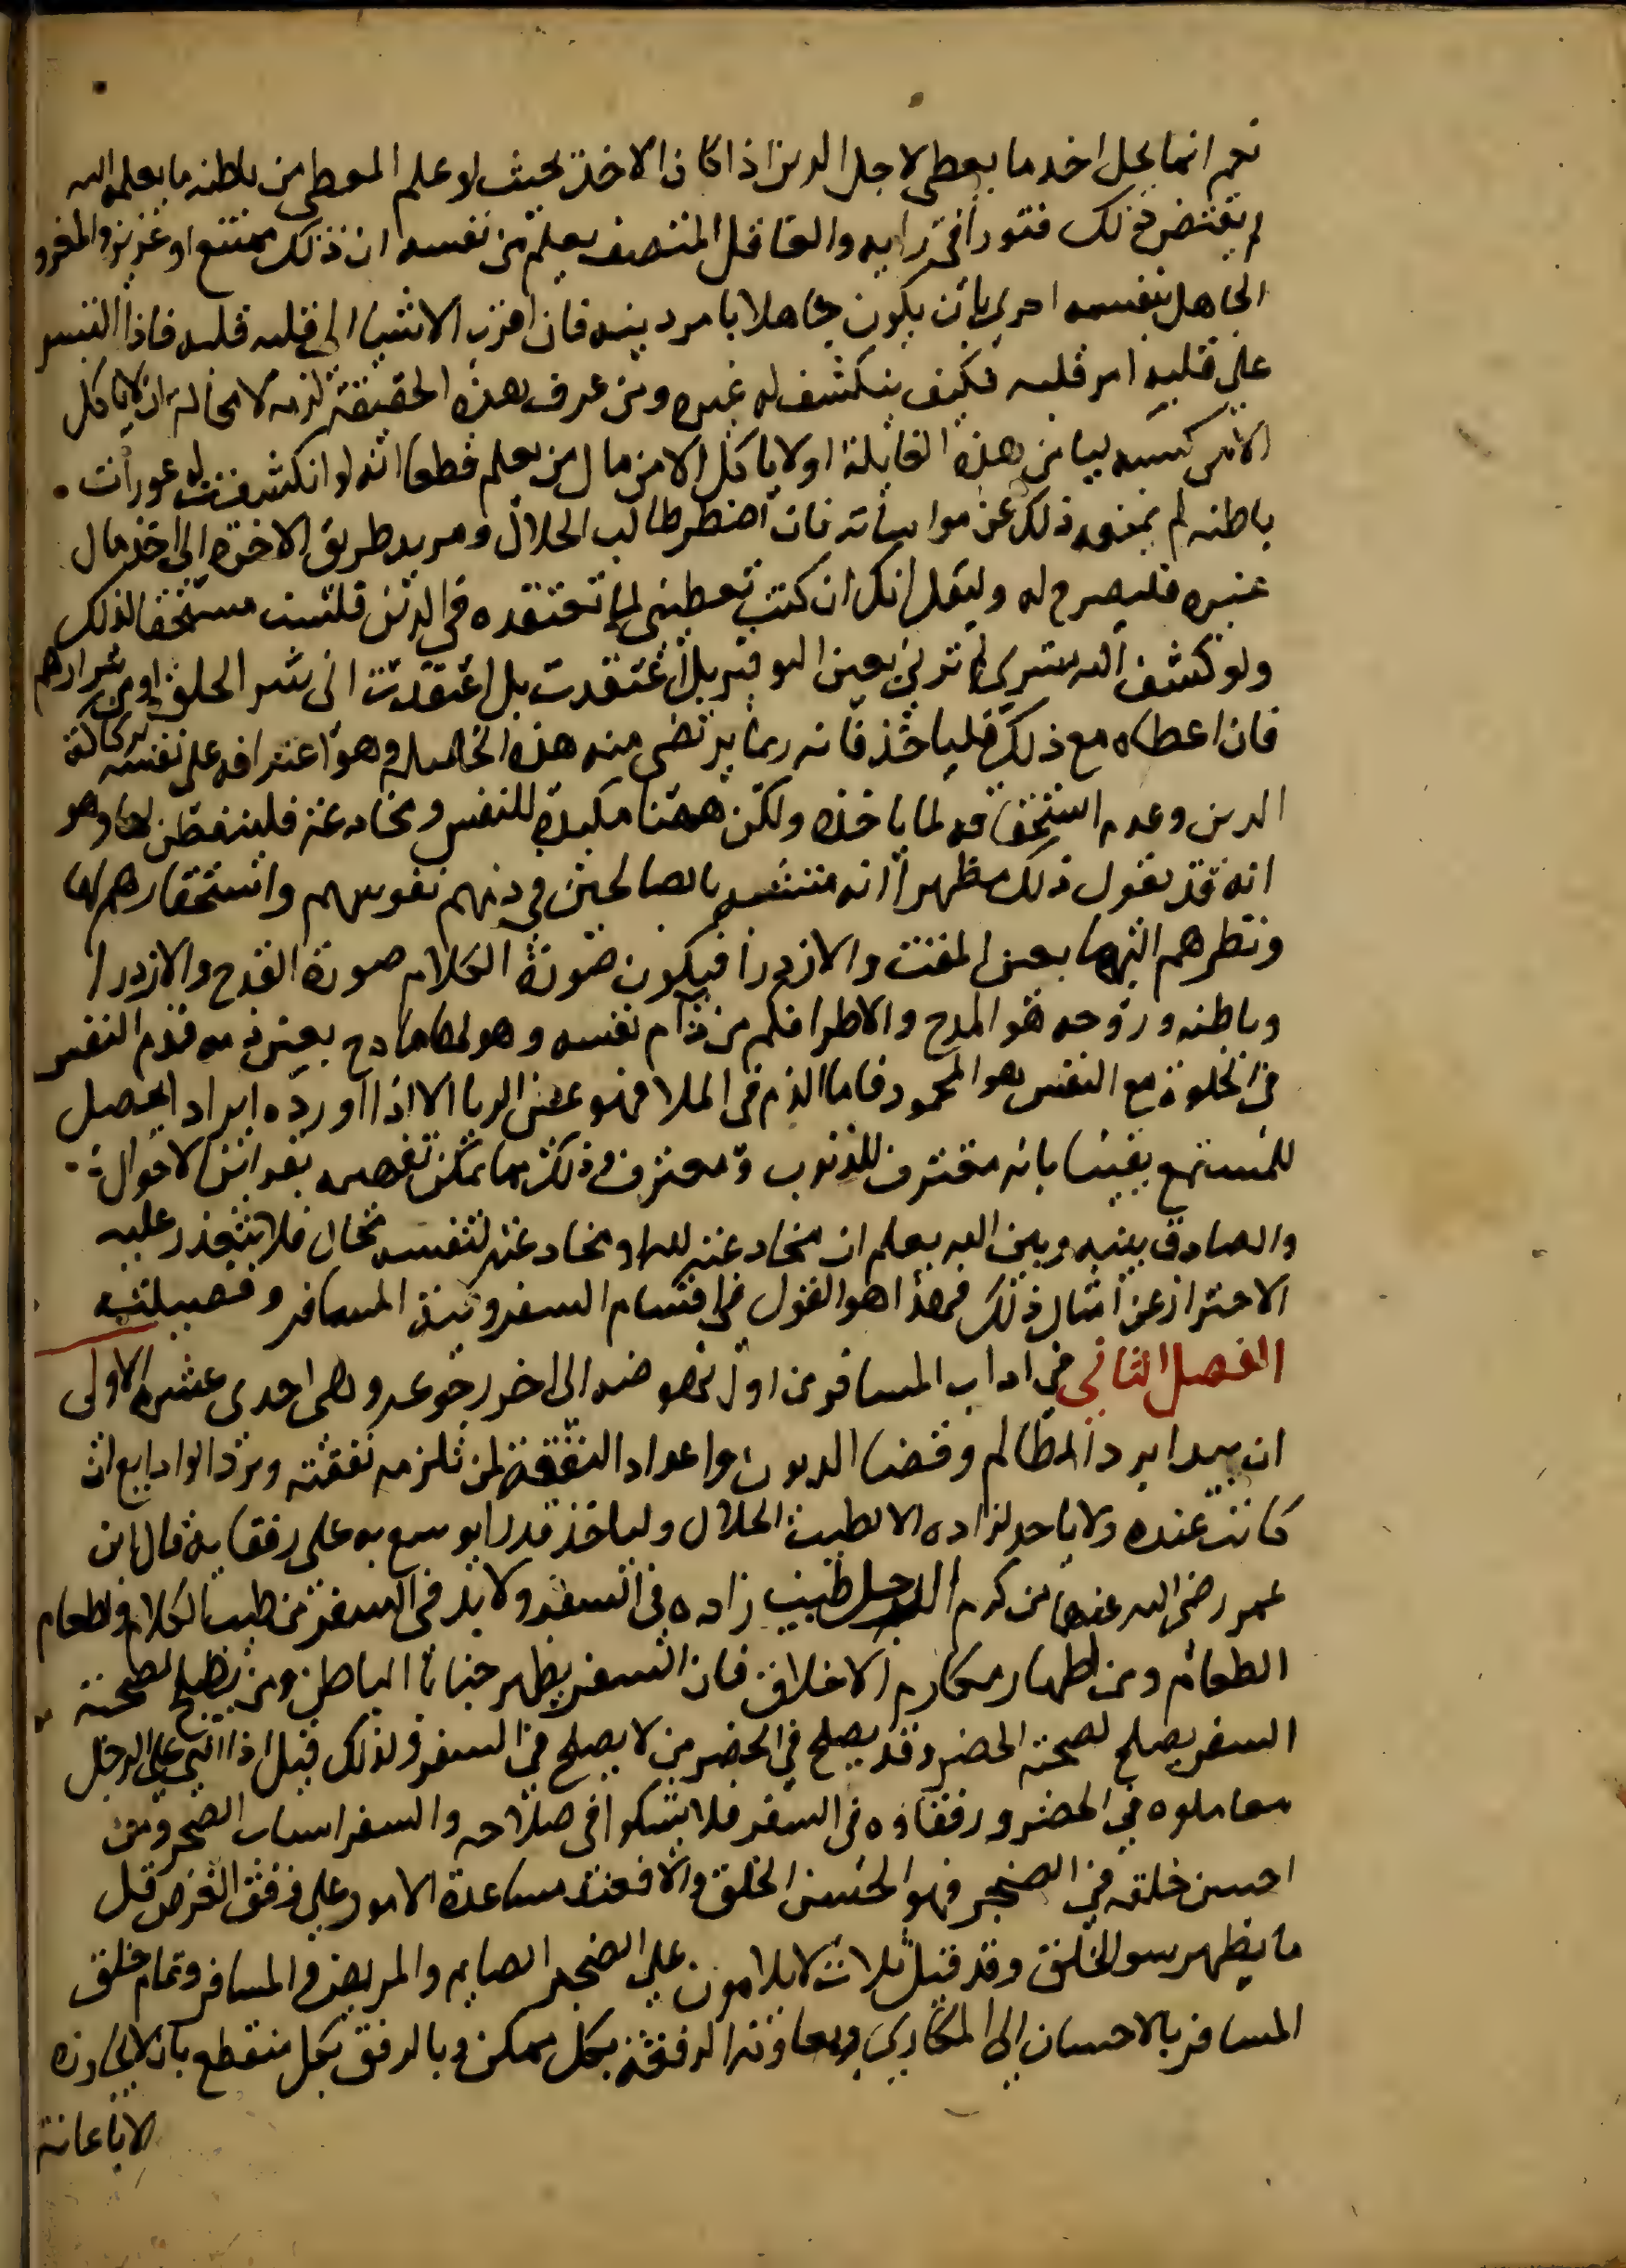 نعم انما يحل اخد ما يعطى لاجل الدين اذا كان الاخذ بحيث لو علم المعطي من باطنه ما يعلمه الله
لم يقتض ذلك فتورا في رايه والعاقل المنصف يعلم من نفسه ان ذلك ممتنع او عزيز والمغرو
الجاهل بنفسه احرى بان يكون جاهلا بامر دينه فان اقرب الاشيا الى قلبه قلبه فاذا التبس
على قلبه امر قلبه فكيف ينكشف له غيره ومن عرف هذه الحقيقة لزمه لا محالة ان لا ياكل
الا من كسبه ليامن هذه الغايلة او لا ياكل الا من مال من يعلم قطعا انه لو انكشفت له عورات
باطنه لم يمنعه ذلك عن مواساته فان اضطر طالب الحلال ومريد طريق الاخرة الى اخذ مال
غيره فليصرح له وليقل انك ان كنت تعطيني لما تعتقده في الدين فلست مستحقا لذلك
ولو كشف الله ستري لم ترني بعين التوقير بل اعتقدت بل اعتقدت اني شر الخلق او من شرارهم
فان اعطاه مع ذلك فلياخذ فانه ربما يرتضى منه هذه الخصلة وهو اعترافه على نفسه بركاكة
الدين وعدم استحقاقه لما ياخذه ولكن ههنا مكيدة للنفس ومخادعة فليتفطن لها وهو
انه قد يقول ذلك مظهرا انه متشبه بالصالحين في ذمهم نفوسهم واستحقارهم لها
ونظرهم اليها بعين المقت والازدرا فيكون صورة الكلام صورة القدح والازدرا
وباطنه وروحه هو المدح والاطرا فكم من ذام نفسه وهو لها مادح بعين ذمه فذم النفس
في الخلوة مع النفس هو المحمود فاما الذم في الملا فهو عين الريا الا اذا اورده ايراد يحصل
للمستمع يقينا بانه مقترف للذنوب ومعترف وذلك مما يمكن تفهيمه بقراين الاحوال
والصادق بينه وبين الله يعلم ان مخادعته لله او مخادعته لنفسه محال فلا يتعذر عليه
الاحتراز عن امثال ذلك فهذا هو القول في اقسام السفر ونية المسافر وفضيلته
الفصل الثاني في اداب المسافر من اول نهوضه الى اخر رجوعه وهي احدى عشرة الاولى
ان يبدا برد المظالم وقضا الديون واعداد النفقة لمن تلزمه نفقته وبرد الودايع ان
كانت عنده ولا ياخد لزاده الا الطيب الحلال ولياخذ قدرا يوسع به على رفقايه قال ابن
عمر رضي الله عنهما من كرم الرجل طيب زاده في السفر ولا بد في السفر من طيب الكلام واطعام
الطعام ومن اظهار مكارم الاخلاق فان السفر يظهر خبايا الباطن ومن يصلح لصحبة
السفر يصلح لصحبة الحضر وقد يصلح في الحضر من لا يصلح في السفر ولذلك قيل اذا اثنى على الرجل
معاملوه في الحضر ورفقاوه في السفر فلا تشكوا في صلاحه والسفر اسباب الضجر ومن
احسن خلقه في الضجر فهو الحسن الخلق والا فعند مساعدة الامور على وفق الغرض قل
ما يظهر سو الخلق وقد قيل ثلاث لا يلامون على الضجر الصايم والمريض والمسافر وتمام خلق
المسافر بالاحسان الى المكاري وبمعاونة الرفقة بكل ممكن وبالرفق بكل منقطع بان لا يجاوزه
الا باعانة